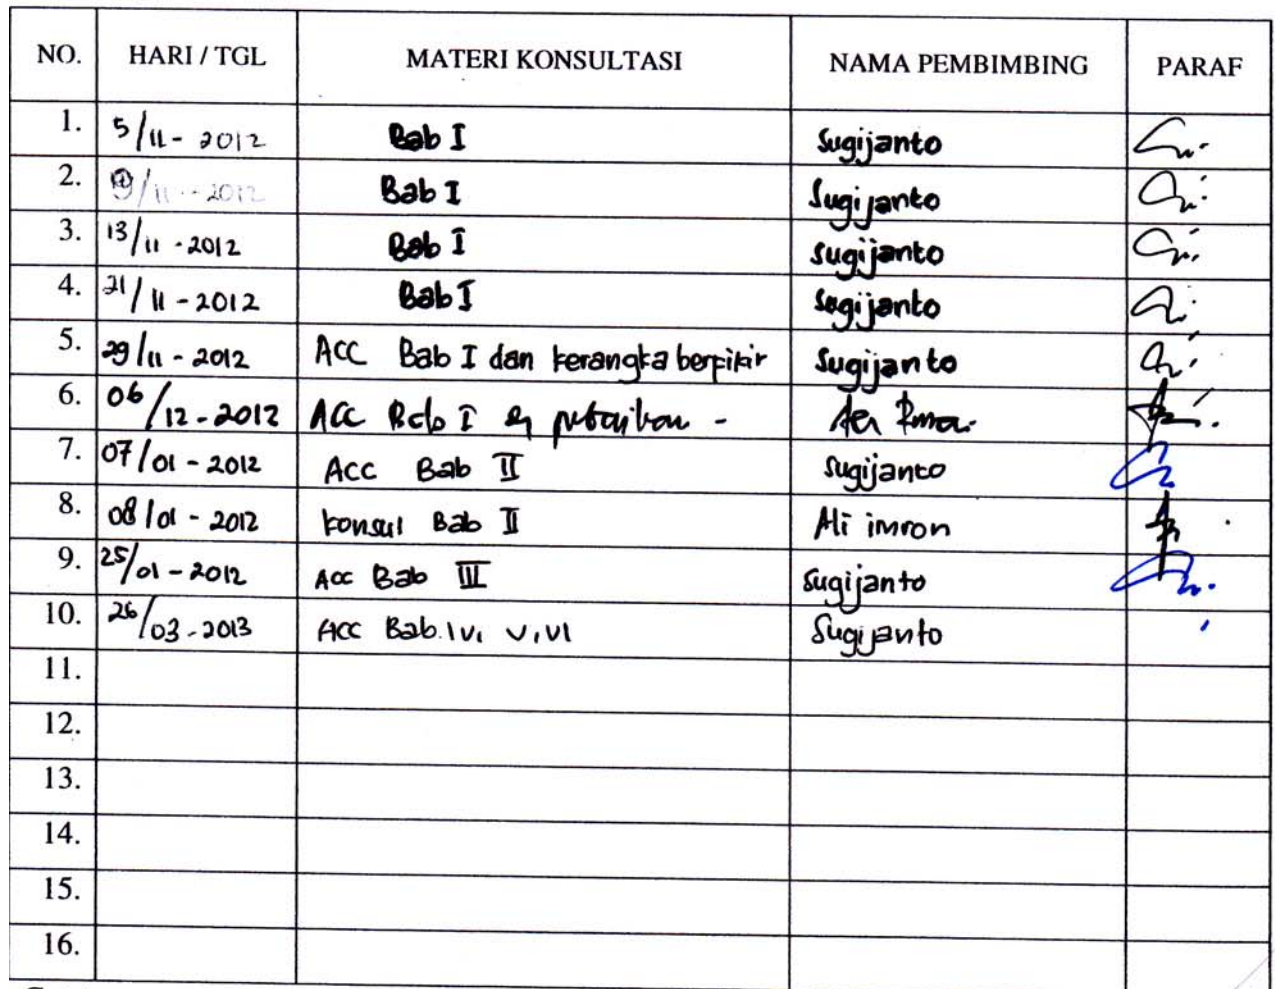 NO. HARI / TGL MATERI KONSULTASI NAMA PEMBIMBING PARAF
1. 5/11 - 2012 Bab I Sugijanto
2. 9/11 - 2012 Bab I Sugijanto
3. 13/11 - 2012 Bab I Sugijanto
4. 21/11 - 2012 Bab I Sugijanto
5. 29/11 - 2012 ACC Bab I dan kerangka berfikir Sugijanto
6. 06/12 - 2012 ACC Bab I -
7. 07/01 - 2012 Acc Bab II Sugijanto
8. 08/01 - 2012 konsul Bab II Ali imron
9. 25/01 - 2012 Acc Bab III Sugijanto
10. 26/03 - 2013 ACC Bab IV, V, VI Sugijanto
11.
12.
13.
14.
15.
16.